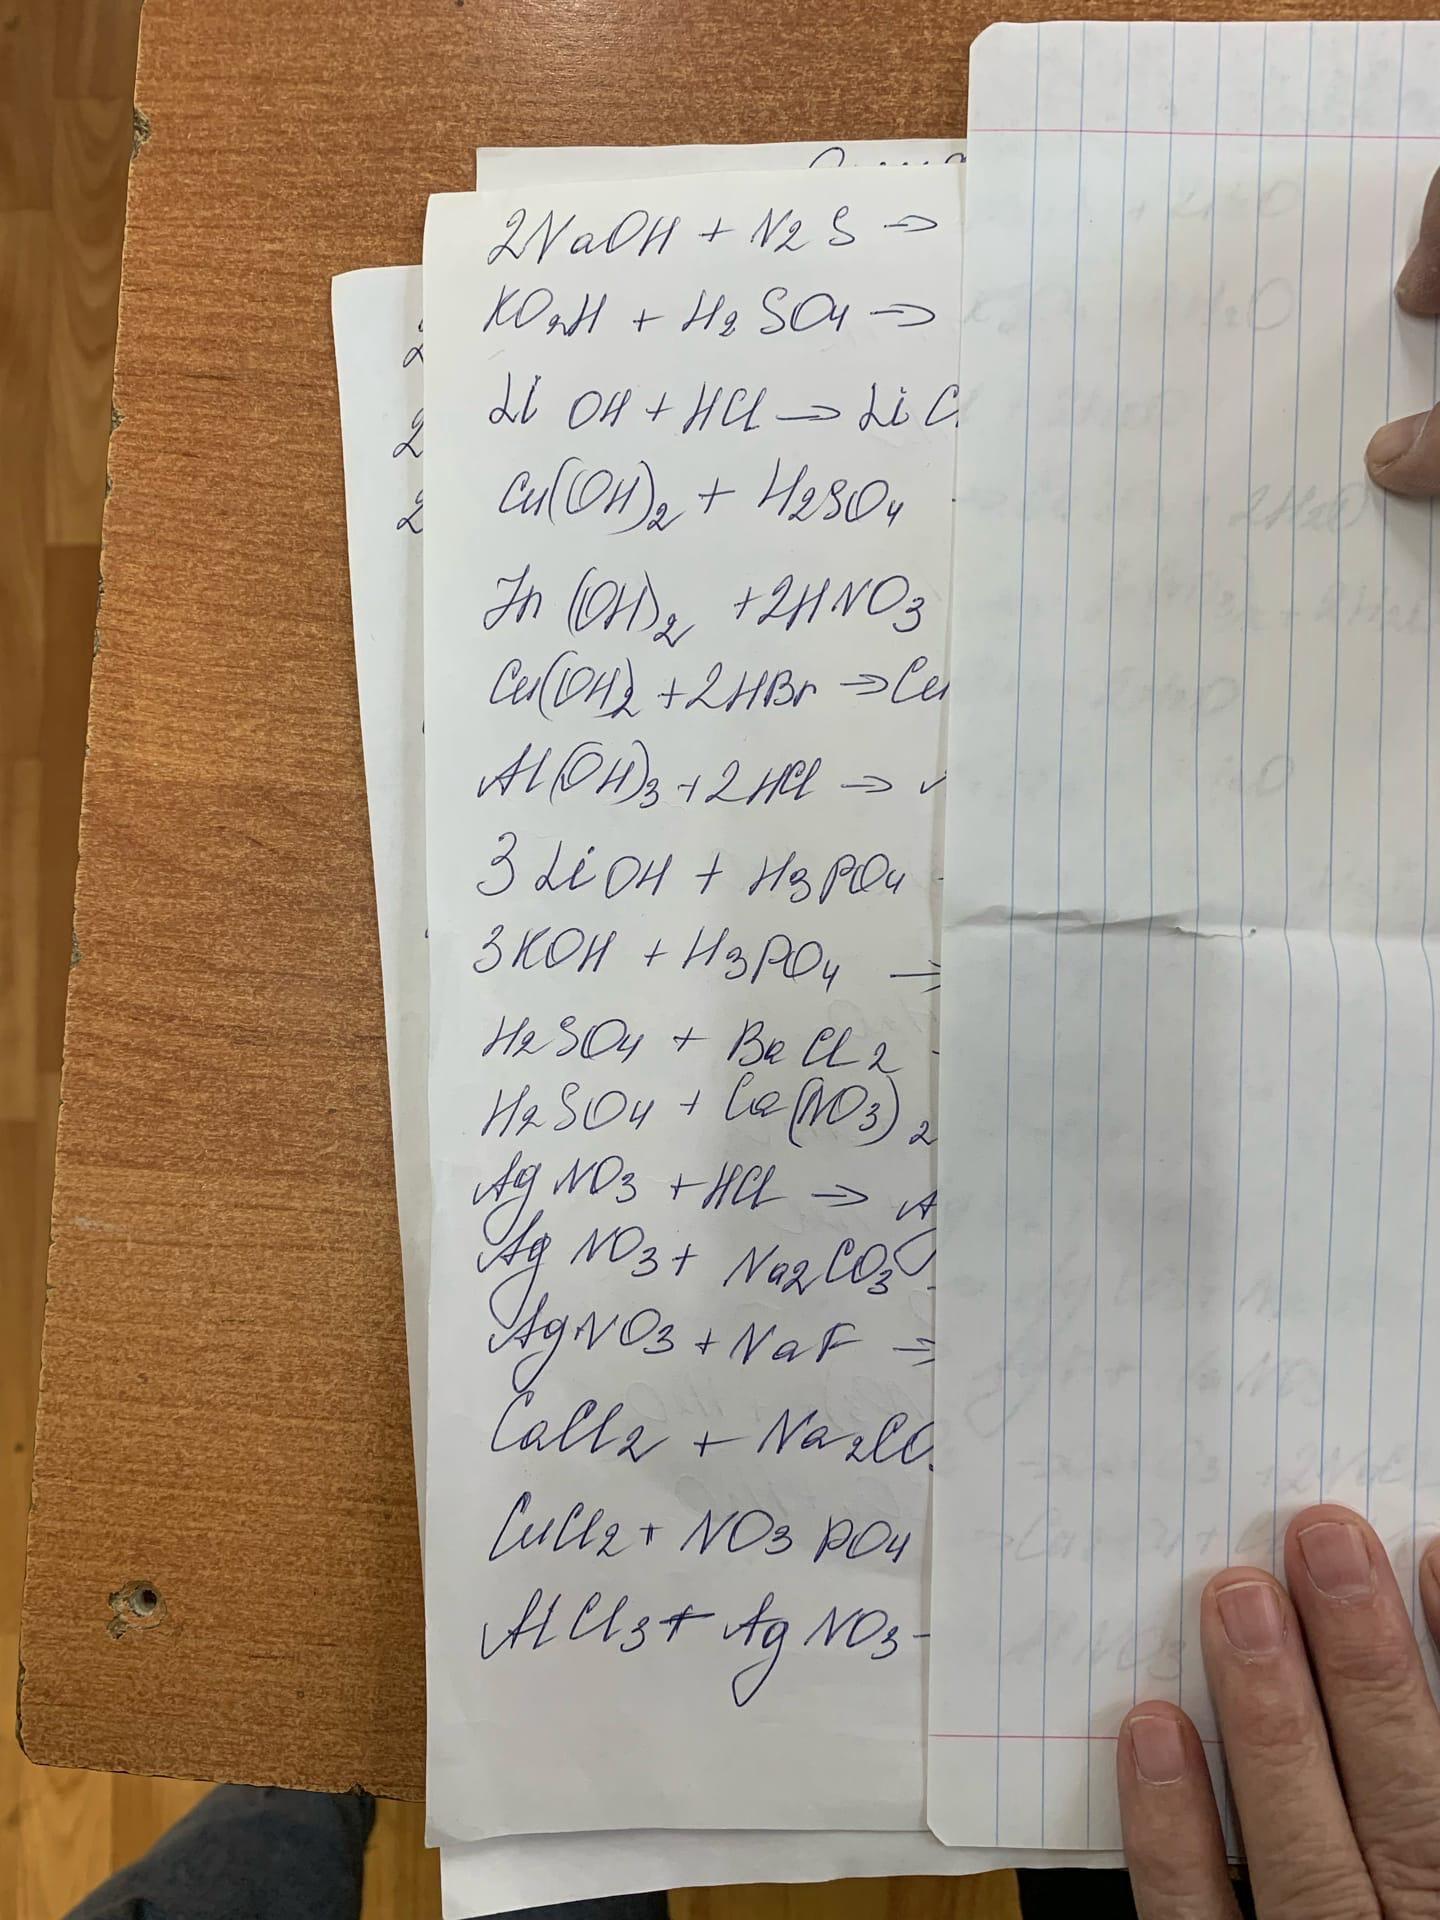 2NaOH + N2S →
KO2H + H2SO4 →
LiOH + HCl → LiC
Cu(OH)2 + H2SO4
Zn(OH)2 + 2HNO3
Cu(OH)2 + 2HBr → Cu
Al(OH)3 + 2HCl →
3LiOH + H3PO4
3KOH + H3PO4 →
H2SO4 + BaCl2
H2SO4 + Ca(NO3)2
AgNO3 + HCl → Ag
AgNO3 + Na2CO3
AgNO3 + NaF →
CaCl2 + Na2CO
CuCl2 + NO3PO4
AlCl3 + AgNO3 -